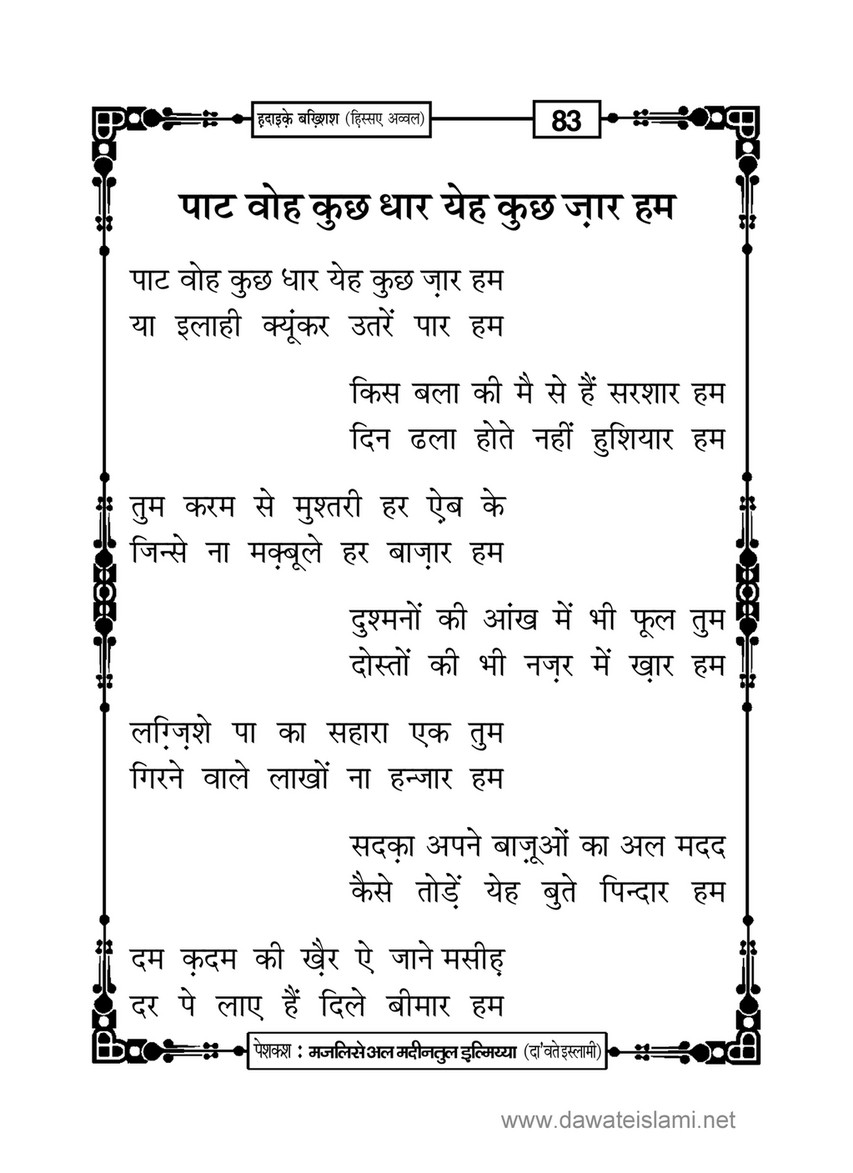 ह़दाइके़ बख़्शिश (हि़स्सए अव्वल)
83
पाट वोह कुछ धार येह कुछ ज़ार हम
पाट वोह कुछ धार येह कुछ ज़ार हम
या इलाही क्यूंकर उतरें पार हम
किस बला की मै से हैं सरशार हम
दिन ढला होते नहीं हुशियार हम
तुम करम से मुश्तरी हर ऐ़ब के
जिन्से ना मक़्बूले हर बाज़ार हम
दुश्मनों की आंख में भी फूल तुम
दोस्तों की भी नज़र में ख़ार हम
लग़्ज़िशे पा का सहारा एक तुम
गिरने वाले लाखों ना हन्जार हम
सदक़ा अपने बाज़ूओं का अल मदद
कैसे तोड़ें येह बुते पिन्दार हम
दम क़दम की ख़ैर ऐ जाने मसीह़
दर पे लाए हैं दिले बीमार हम
पेशकश : मजलिसे अल मदीनतुल इल्मिय्या (दा'वते इस्लामी)
www.dawateislami.net